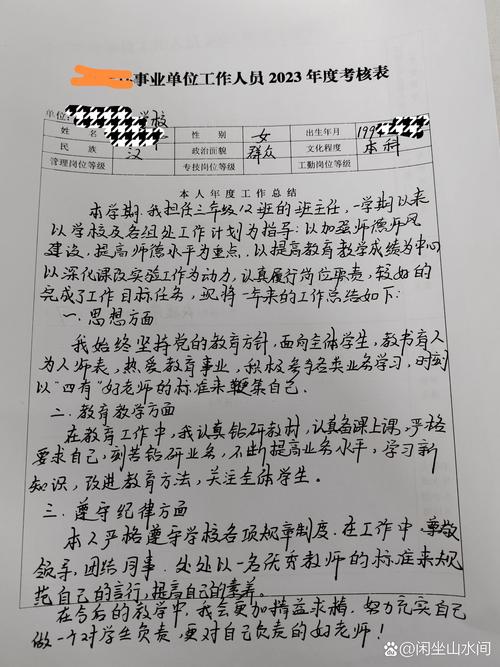 事业单位工作人员2023年度考核表
单位 学校
姓 名 性 别 女 出生年月 199
民 族 汉 政治面貌 群众 文化程度 本科
管理岗位等级 专技岗位等级 工勤岗位等级
本人年度工作总结
本学期,我担任三年级12班的班主任,一学期以来
以学校及各组处工作计划为指导;以加强师德师风
建设,提高师德水平为重点,以提高教育教学成绩为中心
以深化课改实验工作为动力,认真履行岗位职责,较好的
完成了工作目标任务,现将一年来的工作总结如下:
一.思想方面
我始终坚持党的教育方针,面向全体学生,教书育人
为人师表,热爱教育事业,积极参与各类业务学习,时刻
以"四有"好老师的标准来鞭策自己.
二.教育教学方面
在教育工作中,我认真钻研教材,认真备课上课,严格
要求自己,刻苦钻研业务,不断提高业务水平,学习新
知识,改进教育方法,关注全体学生。
三.遵守纪律方面
本人严格遵守学校各项规章制度.在工作中.尊敬
领导,团结同事.处处以一名优秀教师的标准来规
范自己的言行,提高自己的素养。
在今后的教学中.我会更加精益求精.努力充实自己
做一个对学生负责,更对自己负责的好老师!
@闲坐山水间